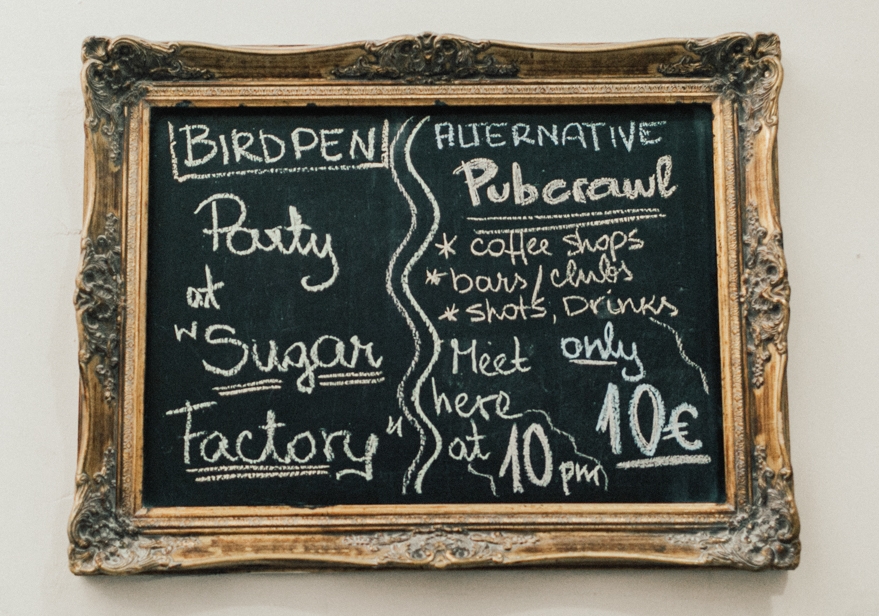 BIRDPEN
Party
at
"Sugar
Factory"
ALTERNATIVE
Pubcrawl
* coffee shops
* bars/clubs
* shots, Drinks
Meet
here
at 10 pm
only
10€